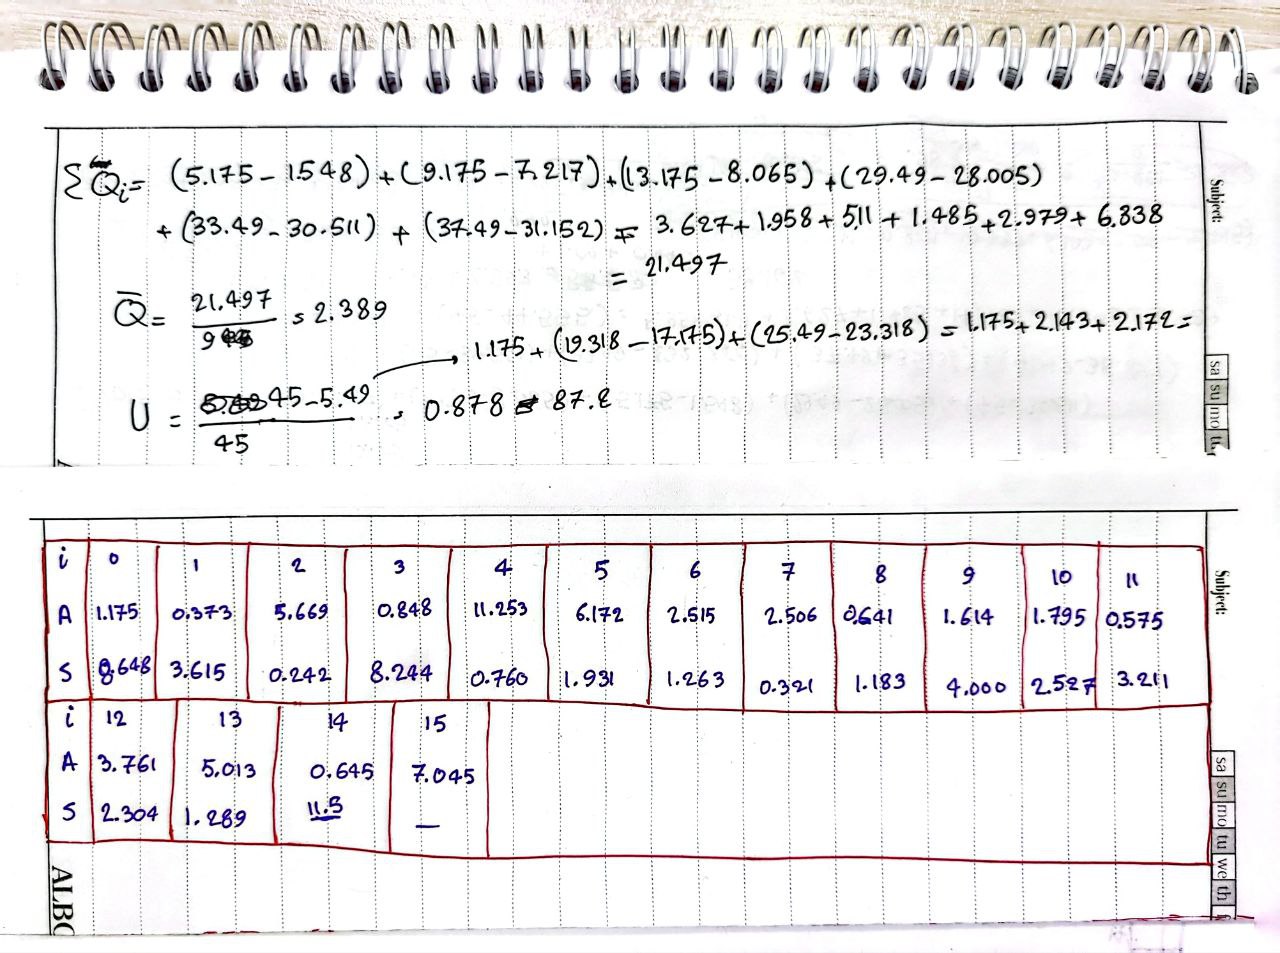 ΣQi= (5.175-1.548)+(9.175-7.217)+(13.175-8.065)+(29.49-28.005)
+(33.49-30.511)+(37.49-31.152) = 3.627+1.958+5.11+1.485+2.979+6.338
= 21.497
Q̄= 21.497/9 = 2.389
1.175+(19.318-17.175)+(25.49-23.318) = 1.175+2.143+2.172=
U = 45-5.49/45 = 0.878 = 87.8
Subject:
sa su mo
i 0 1 2 3 4 5 6 7 8 9 10 11
A 1.175 0.373 5.669 0.848 11.253 6.172 2.515 2.506 0.641 1.614 1.795 0.575
S 8.648 3.615 0.242 8.244 0.760 1.931 1.263 0.321 1.183 4.000 2.527 3.211
i 12 13 14 15
A 3.761 5.013 0.645 7.045
S 2.304 1.289 11.3 —
Subject:
sa su mo tu we th